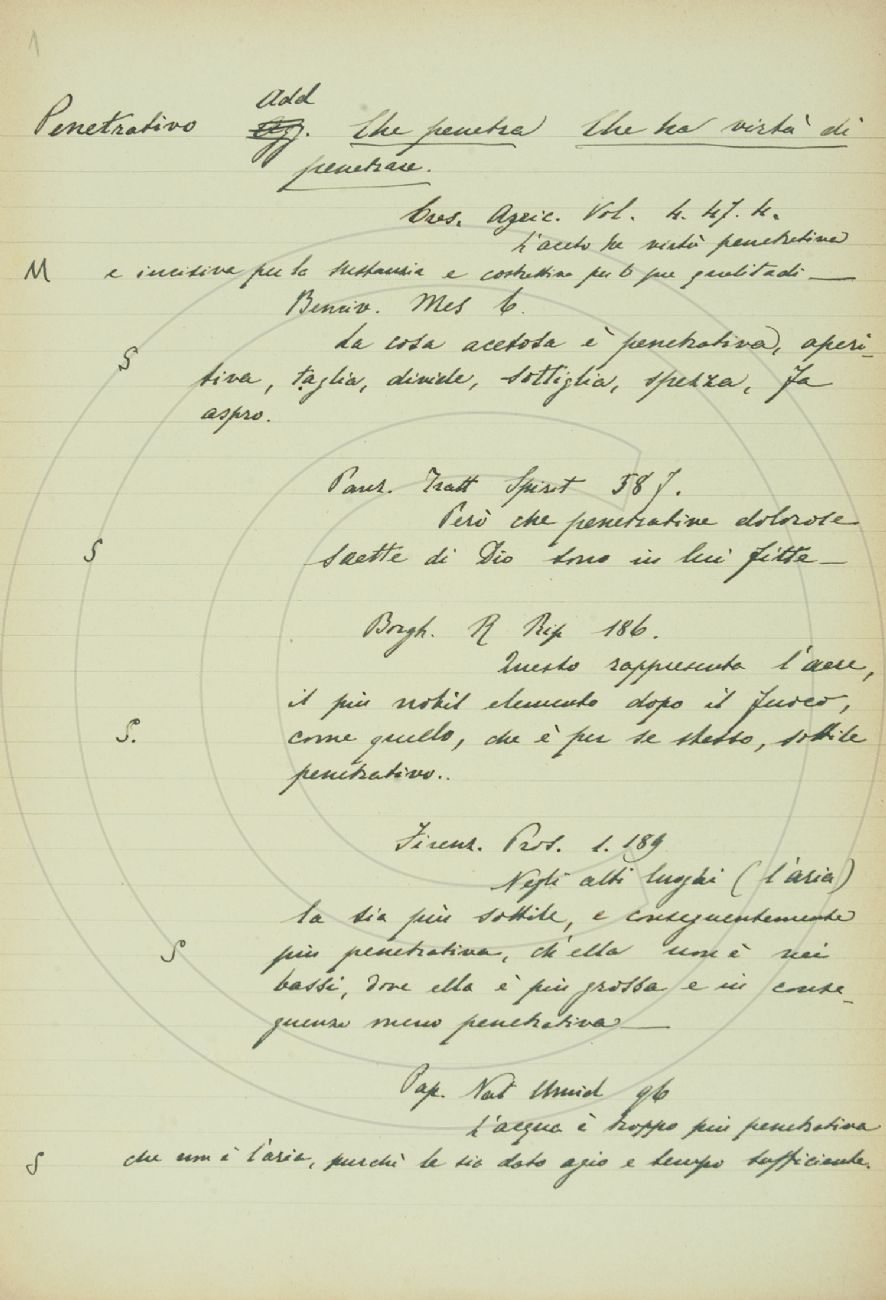 1
Add
Penetrativo Agg. Che penetra Che ha virtù di
penetrare.
Cres. Agric. Vol. 4. 47. 4.
L'aceto ha virtù penetrativa
M e incisiva per la sustanzia e costrettiva per le sue qualitadi —
Benciv. Mes 6.
La cosa acetosa è penetrativa, aperi-
S
tiva, taglia, divide, sottiglia, spezza, fa
aspro.
Panz. Tratt Spirit 58 f.
Però che penetrative dolorose
S saette di Dio sono in lui fitte —
Borgh. R Rip 186.
Questo rappresenta l'aere,
il più nobil elemento dopo il fuoco,
S. come quello, che è per se stesso, sottile
penetrativo..
Firenz. Pros. 1. 189
Negli alti luoghi (l'aria)
la sia più sottile, e conseguentemente
S più penetrativa, ch'ella non è nei
bassi, dove ella è più grossa e in conse-
guenza meno penetrativa —
Pap. Nat Umid 96
L'acqua è troppo più penetrativa
S che non è l'aria, purchè le sia dato agio e tempo sufficiente.